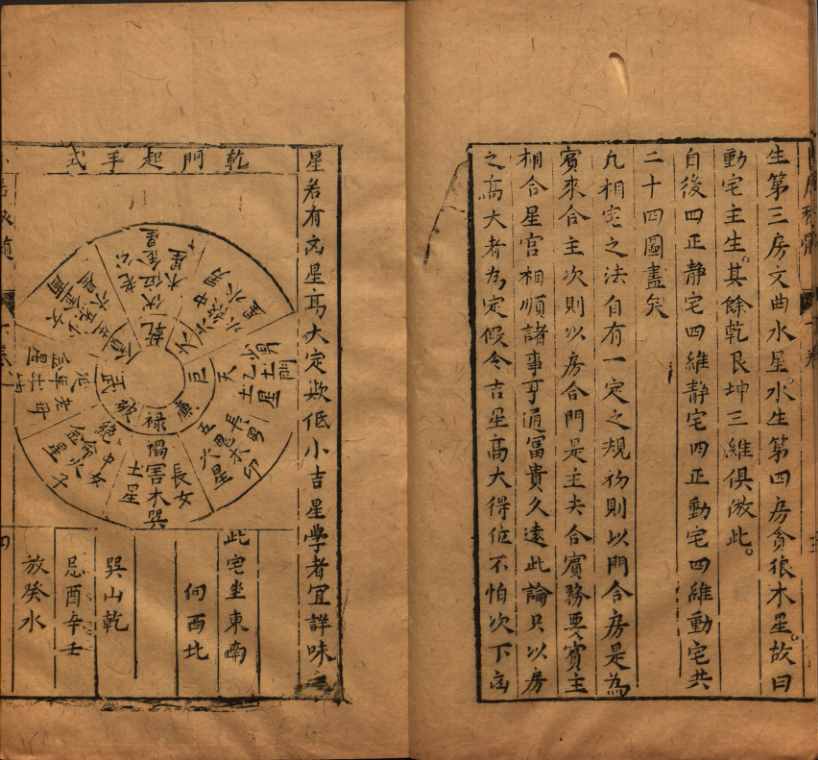 生第三房文曲水星水生第四房貪狼木星故曰
動宅主生其餘乾艮坤三維俱倣此
自後四正静宅四維静宅四正動宅四維動宅共
二十四圖盡矣
凡相宅之法自有一定之規初則以門合房是為
賓來合主次則以房合門是主去合賓務要賓主
相合星宫相順諸事亨通冨貴久遠此論只以房
之高大者為定假令吉星高大得位不怕次下凶
星若有凶星高大定欺低小吉星學者宜詳味之
乾門起手式
乾
伏位
六
水
巨
天乙
土星
門
五鬼
火星
長男
卯
禄
禍害
土星
長女
木
巽
絶命
金星
中女
火
子
武
此宅坐東南
向西北
巽山乾
忌酉辛壬
放癸水